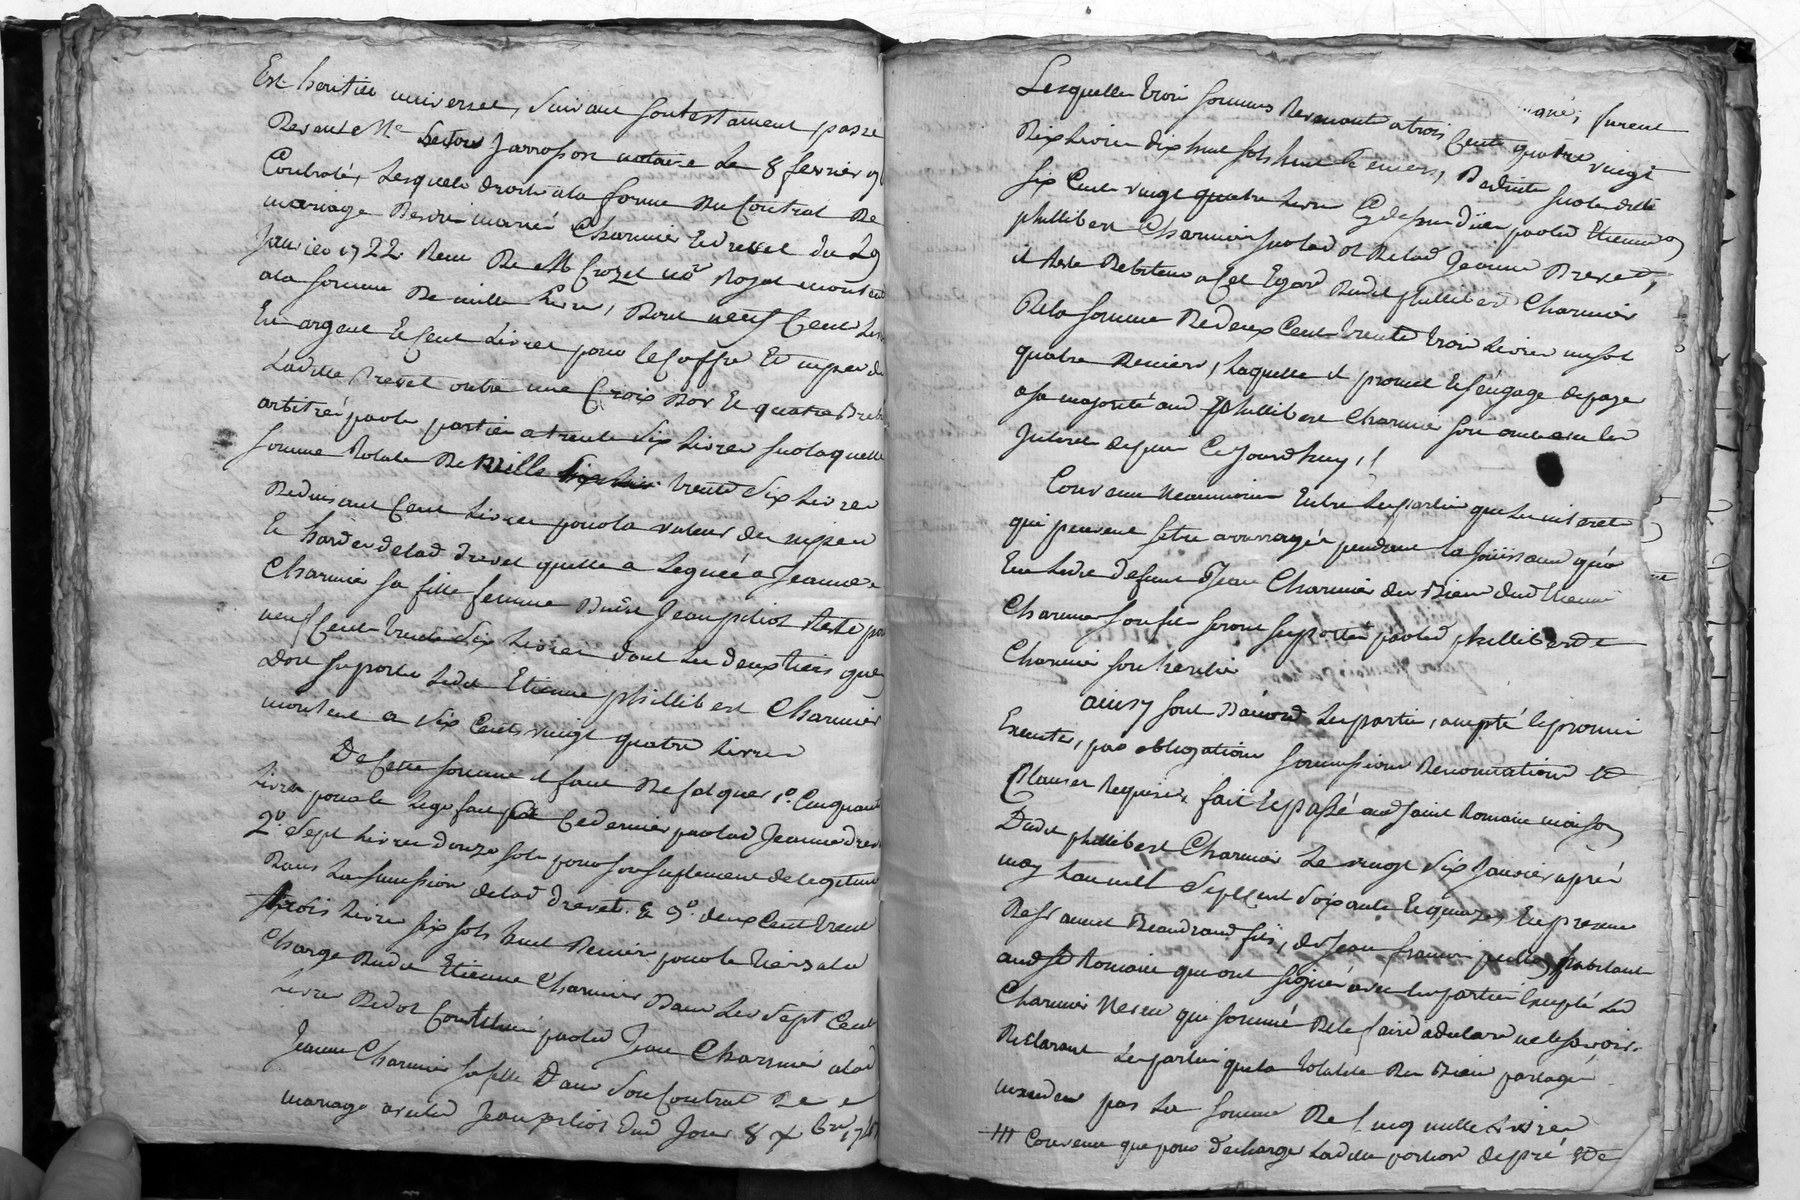 Est heritier universel, suivant son testament passé
Devant Me Jarrosson notaire le 8 fevrier 17
Controlé, Lesquels droits a la forme du Contrat De
mariage Desdits mariés Charmier Et drevet du 29
Janvier 1722 Reçu De Me Crozet nore Royal montent
a la somme De mille Livres, Dont neuf Cent Livres
En argent Et Cent Livres pour le Coffre Et nipes de
Ladite Drevet outre une Croix Dor Et quatre Brebis
arbitrés par les parties a trente Six Livres sur laquelle
somme totale De Mille trente Six Livres
Deduisant Cent Livres pour la valeur des nipes
Et hardes de lad drevet quelle a Leguée a Jeanne
Charmier sa fille femme Dudit Jean pitiot Reste pour
neuf Cent trente Six Livres dont les deux tiers que
Doit suporter Ledit Etienne phillibert Charmier
montent a Six Cents vingt quatre Livres
De Cette somme il faut Defalquer 1o. Cinquante
Livres pour le Legs fait Ce dernier par lad Jeanne drevet
2o. Sept Livres douze sols pour son suplement de legitime
Dans La succession de lad Drevet. Et 3o. deux Cent trente
trois Livres six sols huit Deniers pour le tiers a la
Charge Dudit Etienne Charmier Dans Les Sept Cent
Livres De dot Constitué par led Jean Charmier a lad
Jeanne Charmier sa fille Dans Son Contrat De
mariage avec led Jean pitiot Dud Jour 8 xbre 17
Lesquelles trois sommes Revenant a trois Cent quatre vingt
Dix Livres dix huit sols huit Deniers, Deduite sur les dittes
six Cent vingt quatre Livres Cy dessus dües par led Etienne
phillibert Charmier sur la dot De lad Jeanne Drevet,
il Reste Debiteur a Cet Egard Dudit phillibert Charmier
De la somme De deux Cent trente trois Livres un sol
quatre Deniers, Laquelle il promet Et s'engage de payer
a sa majorité aud Phillibert Charmier son oncle avec les
Interet depuis Ce Jourdhuy,!
Convenu neanmoins Entre Les parties que Les interets
qui peuvent s'etre arreragés pendant la Joüissance qu'a
Eue Ledit defunt Jean Charmier des Biens dud Etienne
Charmier son fils seront suportés par led phillibert
Charmier son heritier
ainsy sont D'accord Les parties, accepté Et promis
Executer, par obligations soumissions Renonciations Et
Clauses Requises, fait Et passé aud Saint Romain maison
Dudit phillibert Charmier Le vingt Six Janvier après
midy Lan mil Sept Cent Soixante Et quinze, En presence
De francois Beaudrand fils, Et de Jean francois habitant
aud St Romain qui ont signé avec Les parties Excepté Led
Charmier Neveu qui sommé De le faire a declaré ne le savoir.
Declarant Les parties que la totalité Des Biens partagés
n'excedent pas La somme De Cinq mille Livres
Convenu que pour decharger Ladite portion de pré